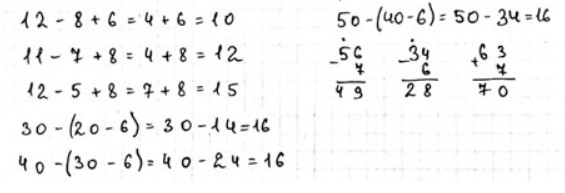 12 - 8 + 6 = 4 + 6 = 10
11 - 7 + 8 = 4 + 8 = 12
12 - 5 + 8 = 7 + 8 = 15
30 - (20 - 6) = 30 - 14 = 16
40 - (30 - 6) = 40 - 24 = 16
50 - (40 - 6) = 50 - 34 = 16
-56 -34 +63
7 6 7
49 28 70